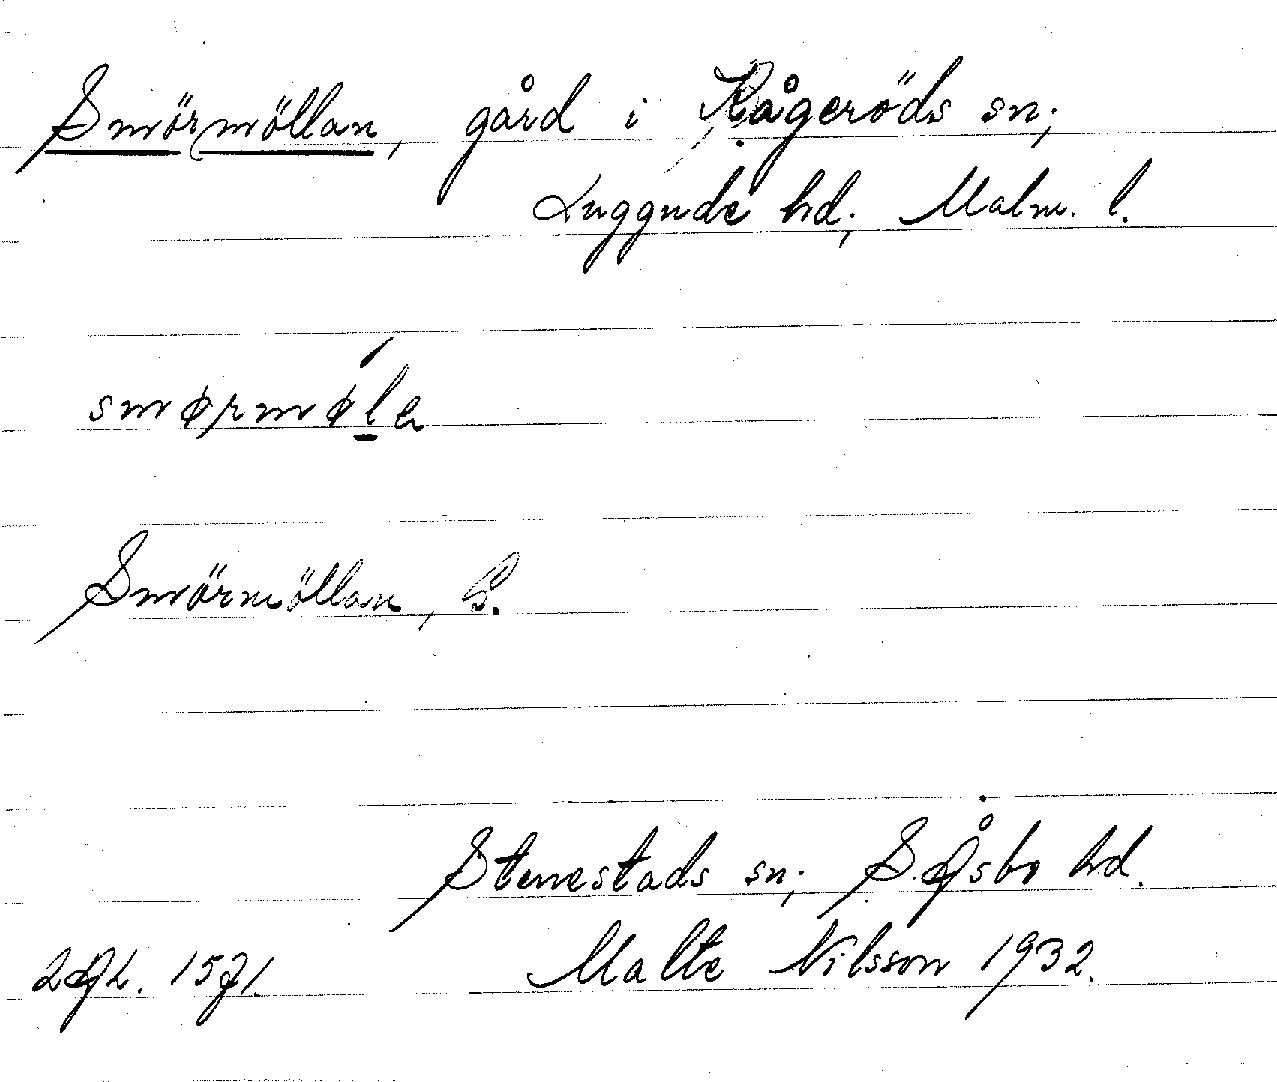 Smörmöllan, gård i Kågeröds sn;
Luggude hd; Malm. l.
smørmøl̲a
Smörmöllan, G.
Stenestads sn; S. Åsbo hd.
LAL. 1571. Malte Nilsson 1932.